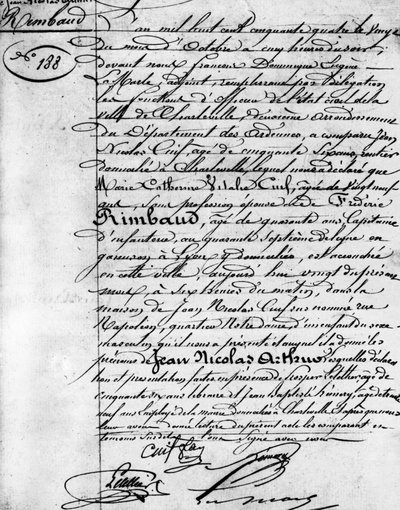 Jean Nicolas Arthur
Rimbaud
No. 188
L'an mil huit cent cinquante quatre le vingt
du mois d'Octobre à cinq heures du soir
devant nous François Dominique
Lemarle adjoint, remplissant par délégation
les fonctions d'officier de l'état civil de la
ville de Charleville, deuxième arrondissement
du Département des Ardennes, a comparu Jean
Nicolas Cuif, âgé de cinquante six ans, rentier
domicilié à Charleville, lequel nous a déclaré que
Marie Catherine Vitalie Cuif, âgée de vingt neuf
ans, sans profession épouse de Fréderic
Rimbaud, âgé de quarante ans Capitaine
d'infanterie au quarante septième de ligne en
garnison à Lyon y domicilié, est accouchée
en cette ville aujourd'hui vingt du présent
mois à six heures du matin, dans la
maison de Jean Nicolas Cuif sus nommé rue
Napoléon, quartier Notre Dame, d'un enfant du sexe
masculin qu'il nous a présenté et auquel il a donné les
prénoms de Jean Nicolas Arthur lesquelles déclara
tion et présentation faites en présence de Prosper Letellier âgé de
cinquante six ans libraire et Jean Baptiste Hémery, âgé de trente
neuf ans employé de la mairie domiciliés à Charleville et après que nous
leur avons donné lecture du présent acte les comparant et
témoins susdits l'ont signé avec nous
Cuif
hemery
Letellier